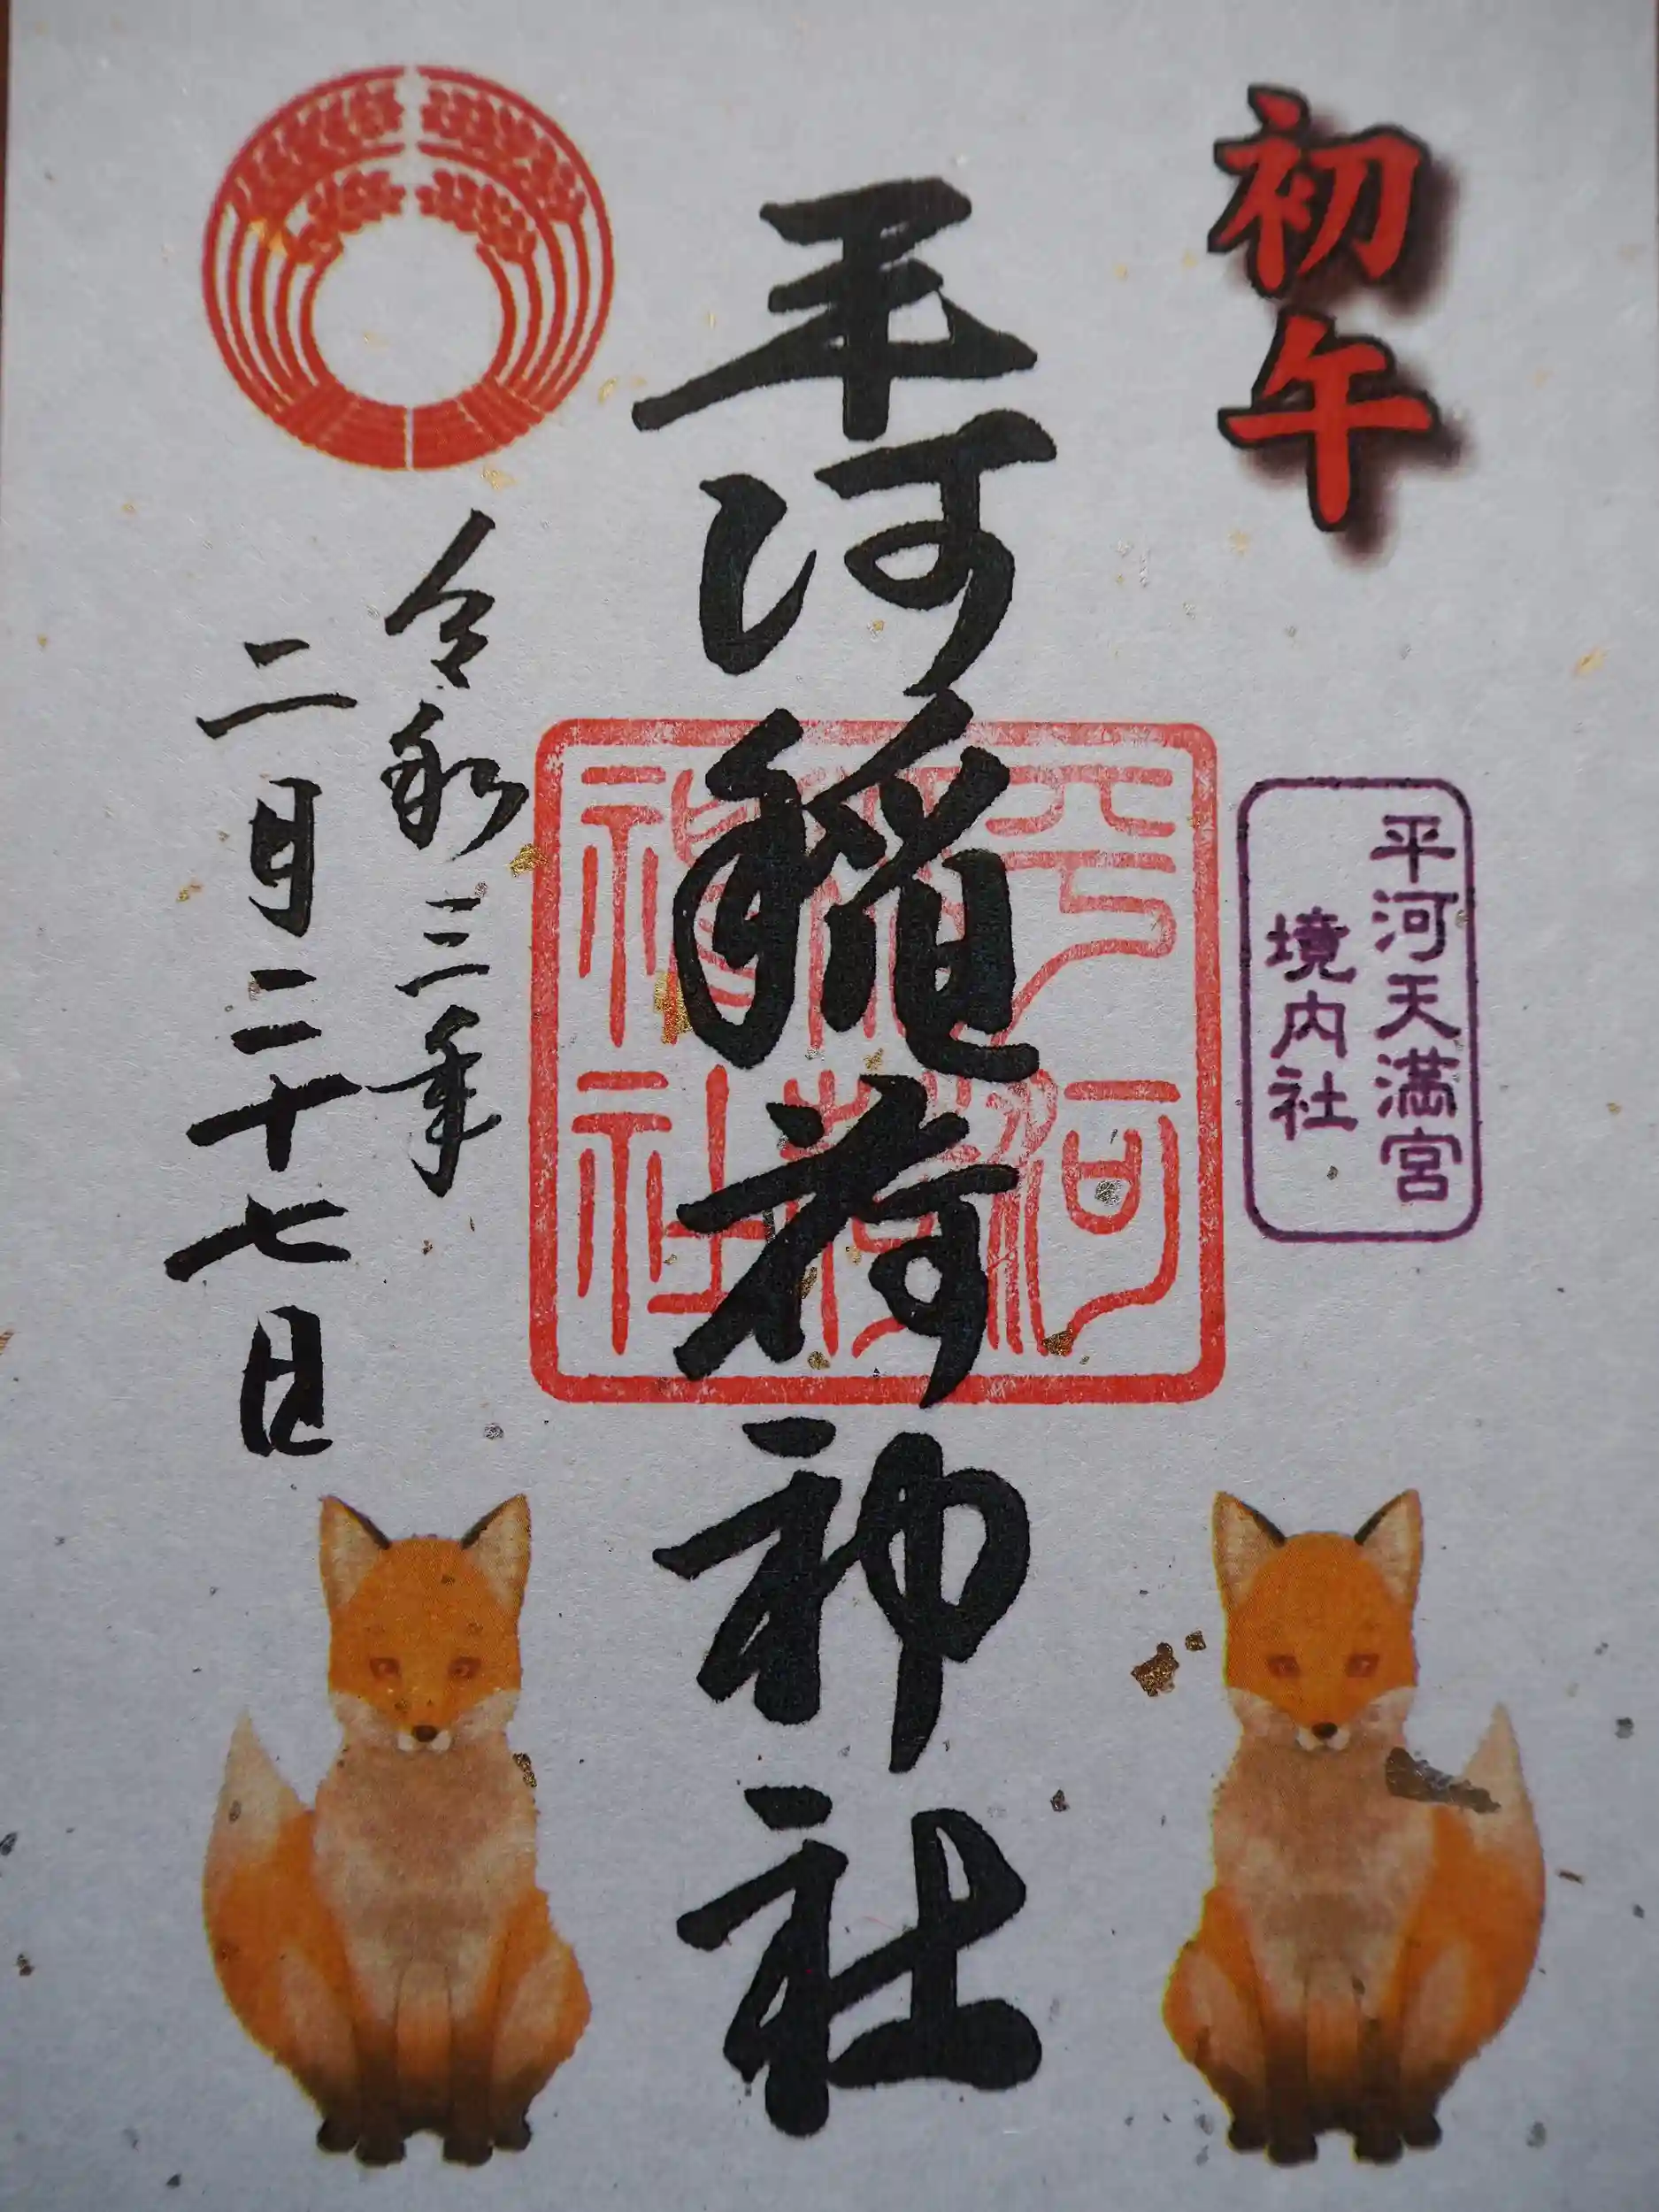 初午
平河天満宮
境内社
平河稲荷神社
平河
稲荷
神社
令和三年
二月二十七日